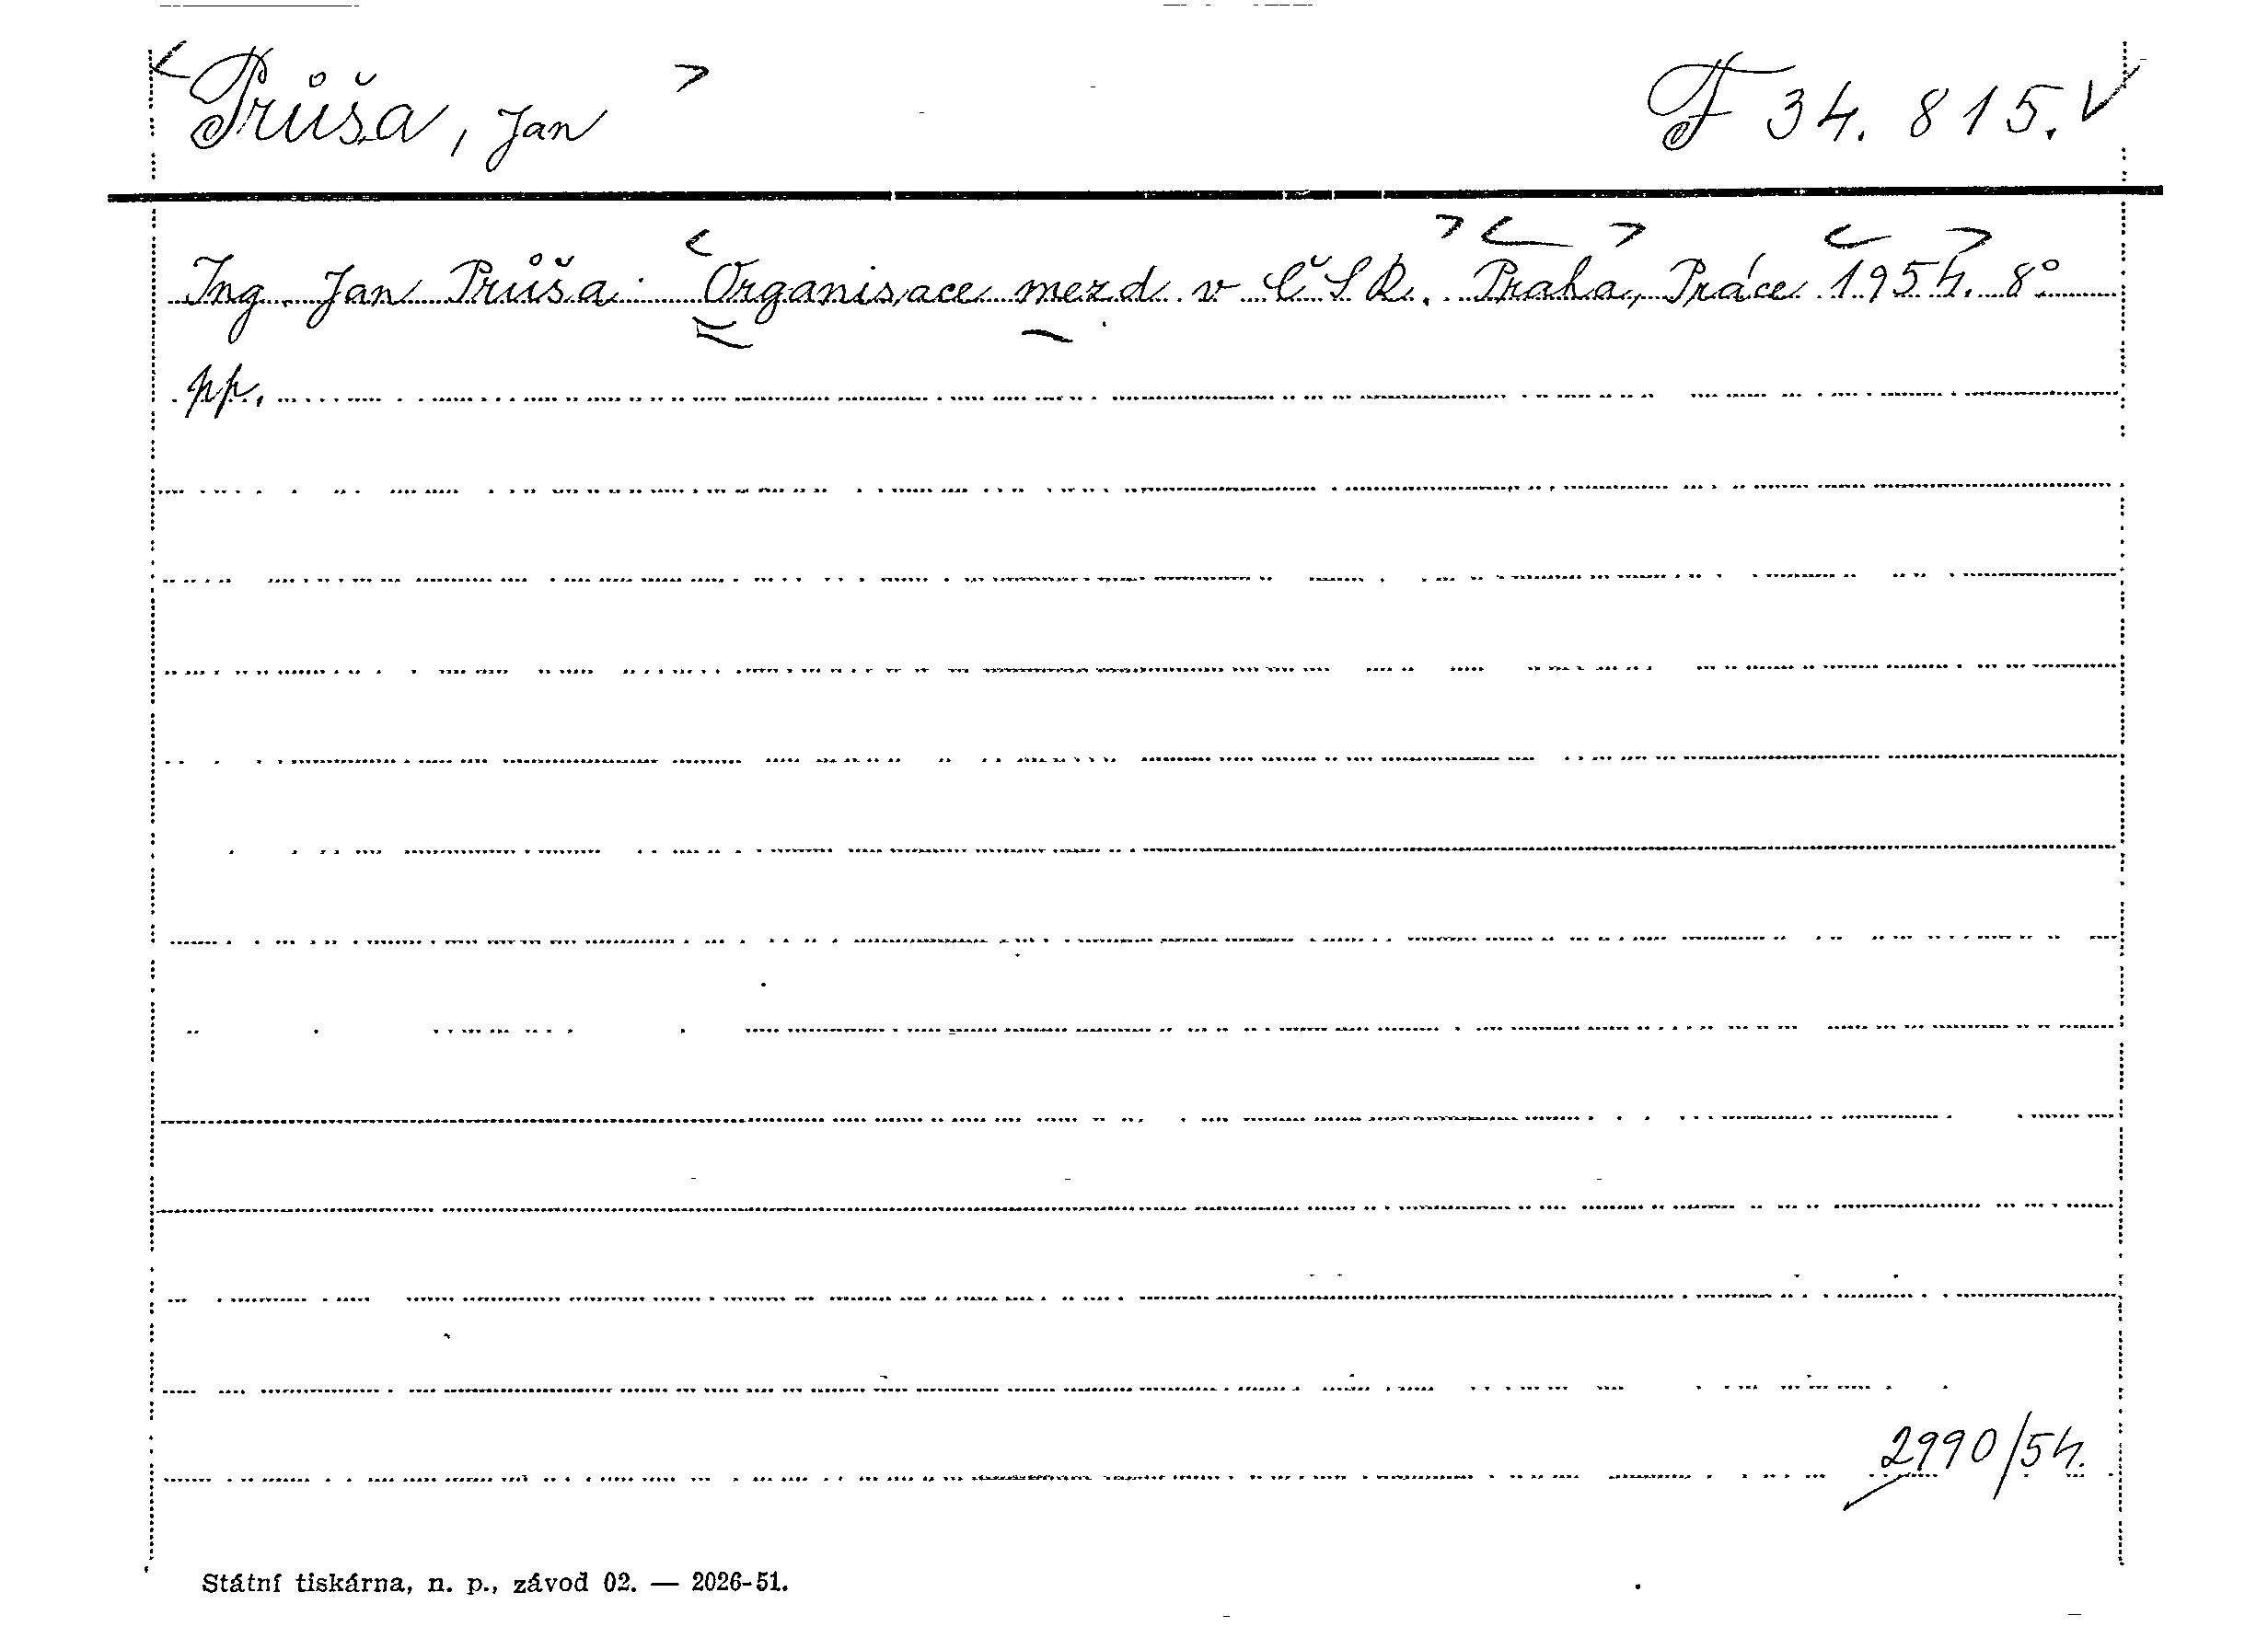 Průša, Jan F 34.815.
Ing. Jan Průša: Organisace mezd v ČSR. Praha, Práce 1954. 8°
pp.
2990/54.
Státní tiskárna, n. p., závod 02. — 2026-51.